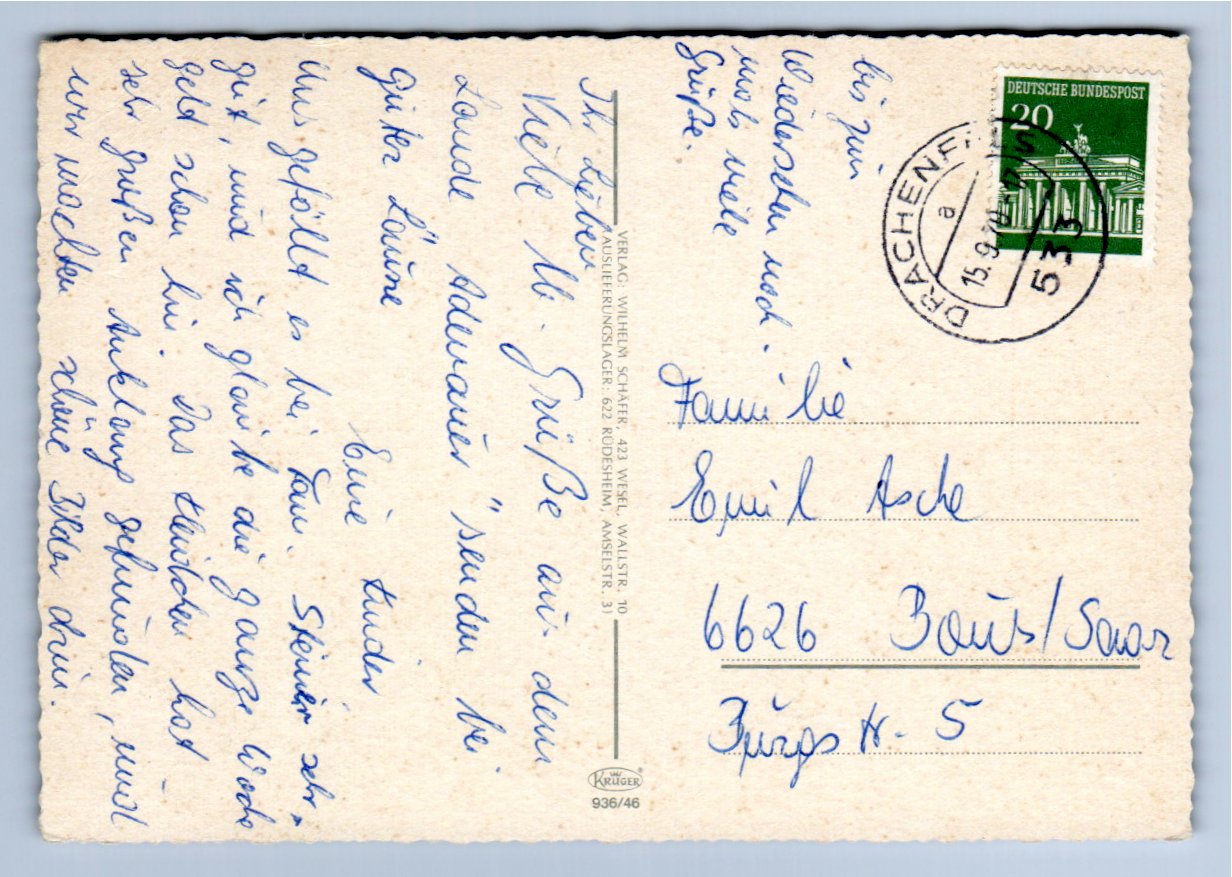 Ihr Lieben
Viele lb. Grüße aus dem
Lande Adenauer's senden bei
guter Laune
Eure Kinder
Uns gefällt es bei Fam. Steiner sehr
gut, und ich glaube die ganze Woche
geht schon hin. Das Kleidchen hat
sehr großen Anklang gefunden, und
wir machten schöne Bilder drin.
bis zum
Wiedersehen noch-
mals viele
Grüße.
VERLAG: WILHELM SCHÄFER, 423 WESEL, WALLSTR. 10
(AUSLIEFERUNGSLAGER: 622 RÜDESHEIM, AMSELSTR. 3)
KRÜGER
936/46
DEUTSCHE BUNDESPOST
20
DRACHENFELS
a
15.9.70
533
Familie
Emil Asche
6626 Bous/Saar
Burgstr. 5